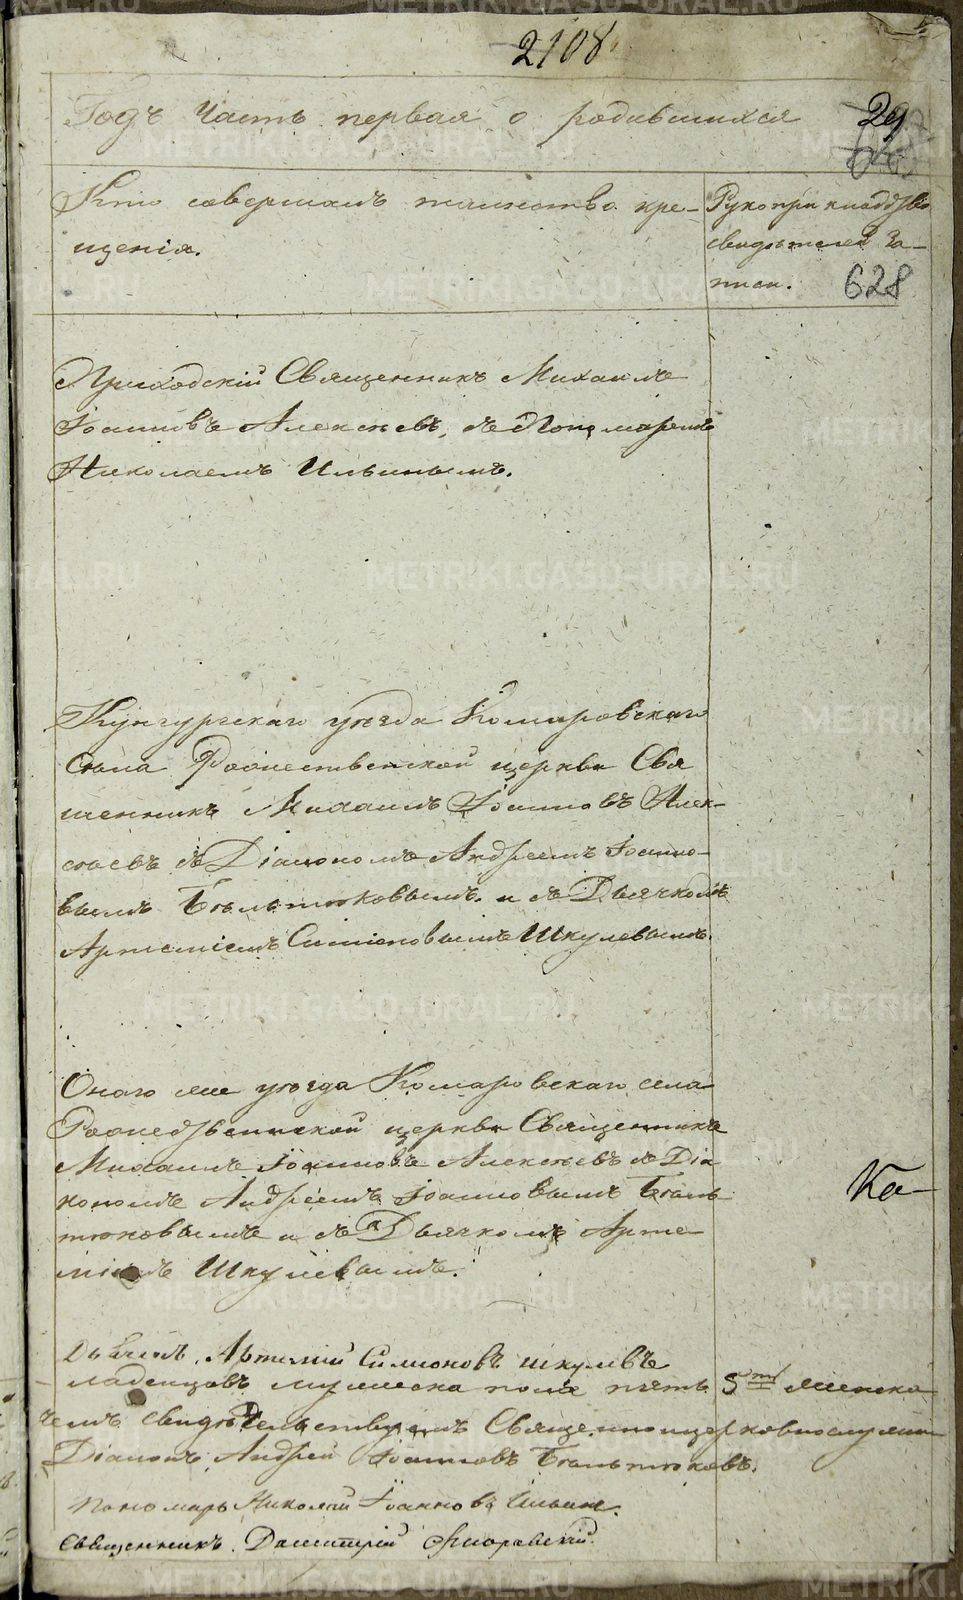 2108
Годъ Часть первая о родившихся 29
Кто совершалъ таинство кре-
щенія.
Рукоприкладство
свидѣтелей За-
писи. 628
Приходскій Священникъ Михаилъ
Іоанновъ Алексѣевъ, съ Пономаремъ
Николаемъ Ильинымъ.
Кунгурскаго уѣзда Комаровскаго
Села Рождественской церкви Свя
щенникъ Михаилъ Іоанновъ Алек-
сѣевъ съ Діакономъ Андреемъ Іоанно-
вымъ Бѣльтюковымъ. и съ Дьячкомъ
Артеміемъ Симеоновымъ Шкулевымъ.
Онаго же уѣзда Комаровскаго села
Рождественской церкви Священникъ
Михаилъ Іоанновъ Алексѣевъ съ Діа
кономъ Андреемъ Іоанновымъ Бѣль
тюковымъ и съ Дьячкомъ Арте
міемъ Шкулевымъ.
Ка-
Дьячекъ Артемій Симионовъ Шкулевъ
ладенцовъ мужеска пола пять 5 женска
чемъ свидѣтельствуемъ Священноцерковнослужи
Діаконъ Андрей Іоанновъ Бѣльтюковъ.
Пономарь Николай Іоанновъ Ильинъ.
Священникъ Димитрій
METRIKI.GASO-URAL.RU